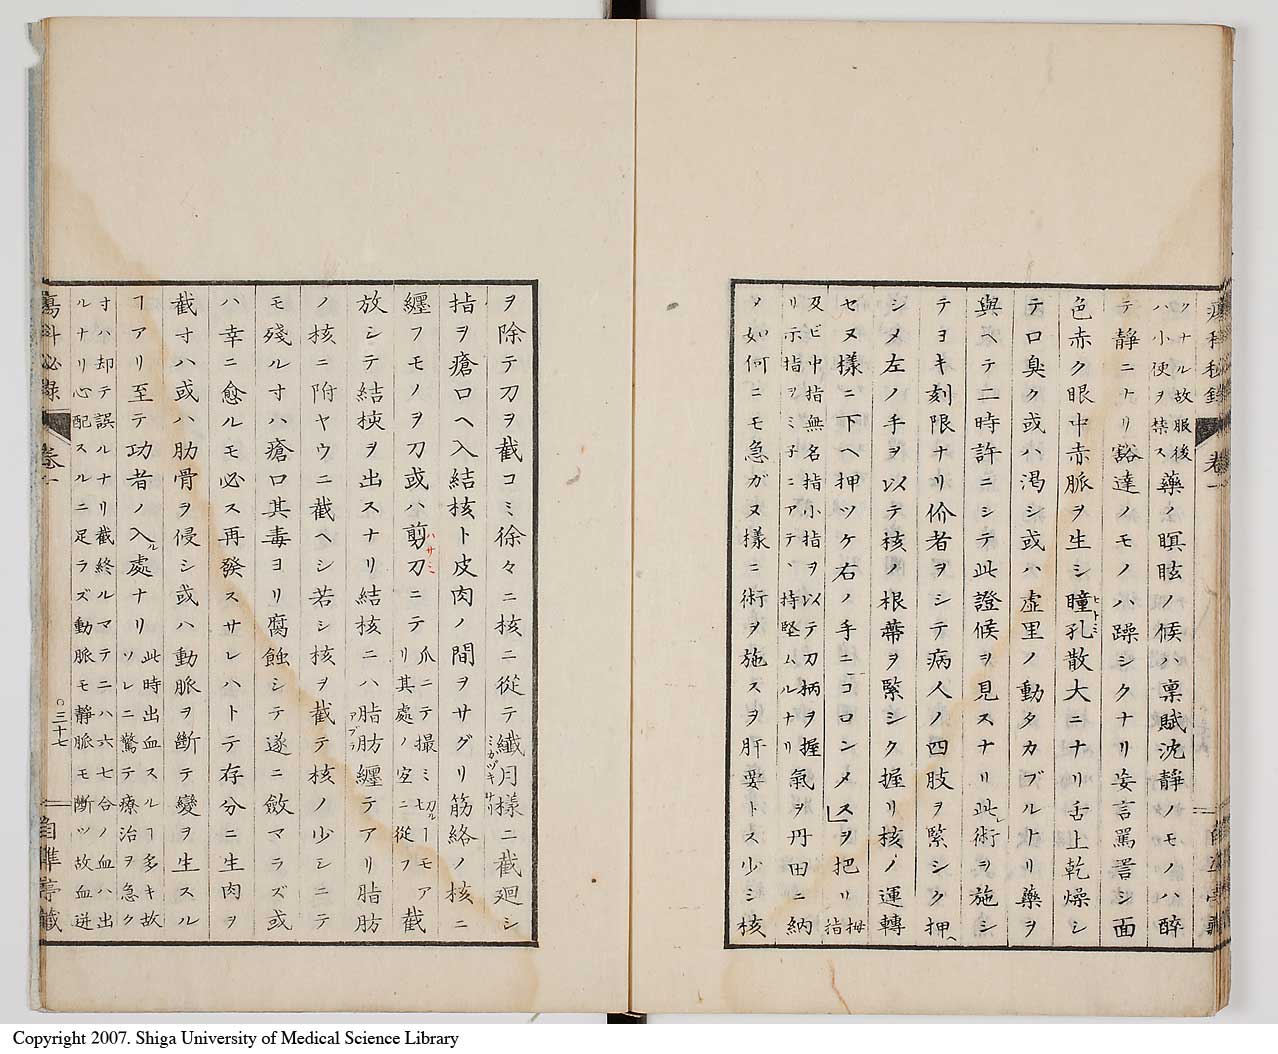 瘍科秘録 卷一
クナル故服後
ハ小便ヲ禁ス 藥ノ瞑眩ノ候ハ稟賦沈靜ノモノハ醉
テ靜ニナリ豁達ノモノハ躁シクナリ妄言罵詈シ面
色赤ク眼中赤脈ヲ生シ瞳孔散大ニナリ舌上乾燥シ
ヒトミ
テ口臭ク或ハ渇シ或ハ虚里ノ動タカブルトリ藥ヲ
與ヘテ二時許ニシテ此證候ヲ見スナリ此レ術ヲ施シ
テヨキ刻限ナリ价者ヲシテ病人ノ四肢ヲ緊シク押ヘ
シメ左ノ手ヲ以テ核ノ根蔕ヲ緊シク握リ核ノ運轉
セヌ樣ニ下ヘ押ツケ右ノ手ニコロンメスヲ把リ 拇指
及ビ中指無名指小指ヲ以テ刀柄ヲ握
リ示指ヲミ子ニアテヽ持堅ムルナリ 氣ヲ丹田ニ納
メ如何ニモ急ガヌ樣ニ術ヲ施スヲ肝要トス少シ核
ヲ除テ刀ヲ截コミ徐々ニ核ニ從テ纖月樣ニ截廻シ
ミカヅキ
指ヲ瘡口ヘ入結核ト皮肉ノ間ヲサグリ筋絡ノ核ニ
纒フモノヲ刀或ハ剪刀ニテ 爪ニテ撮ミ切ルヿモア
リ其處ノ空ニ從フ 截
ハサミ
放シテ結核ヲ出スナリ結核ニハ脂肪纒テアリ脂肪
アブラ
ノ核ニ附ヤウニ截ヘシ若シ核ヲ截テ核ノ少シニテ
モ殘ル寸ハ瘡口其毒ヨリ腐蝕シテ遂ニ斂マラズ或
ハ幸ニ愈ルモ必ス再發スサレハトテ存分ニ生肉ヲ
截寸ハ或ハ肋骨ヲ侵シ或ハ動脈ヲ斷テ變ヲ生スル
ヿアリ至テ功者ノ入ル處ナリ 此時出血スルヿ多キ故
ソレニ驚テ療治ヲ急ク
寸ハ却テ誤ルナリ截終ルマテニハ六七合ノ血ハ出
ルナリ心配スルニ足ラズ動脈モ靜脈モ斷ツ故血迸
瘍科秘録 卷一 三十七 自準亭藏
Copyright 2007. Shiga University of Medical Science Library